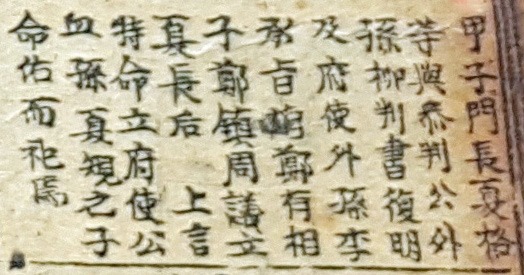 甲子門長夏格
等與參判公外
孫柳判書復明
及府使外孫李
承旨 鄭有相
子鄭鎮周議立
夏長后 上言
特命立府使公
血孫夏規之子
命佑而祀焉